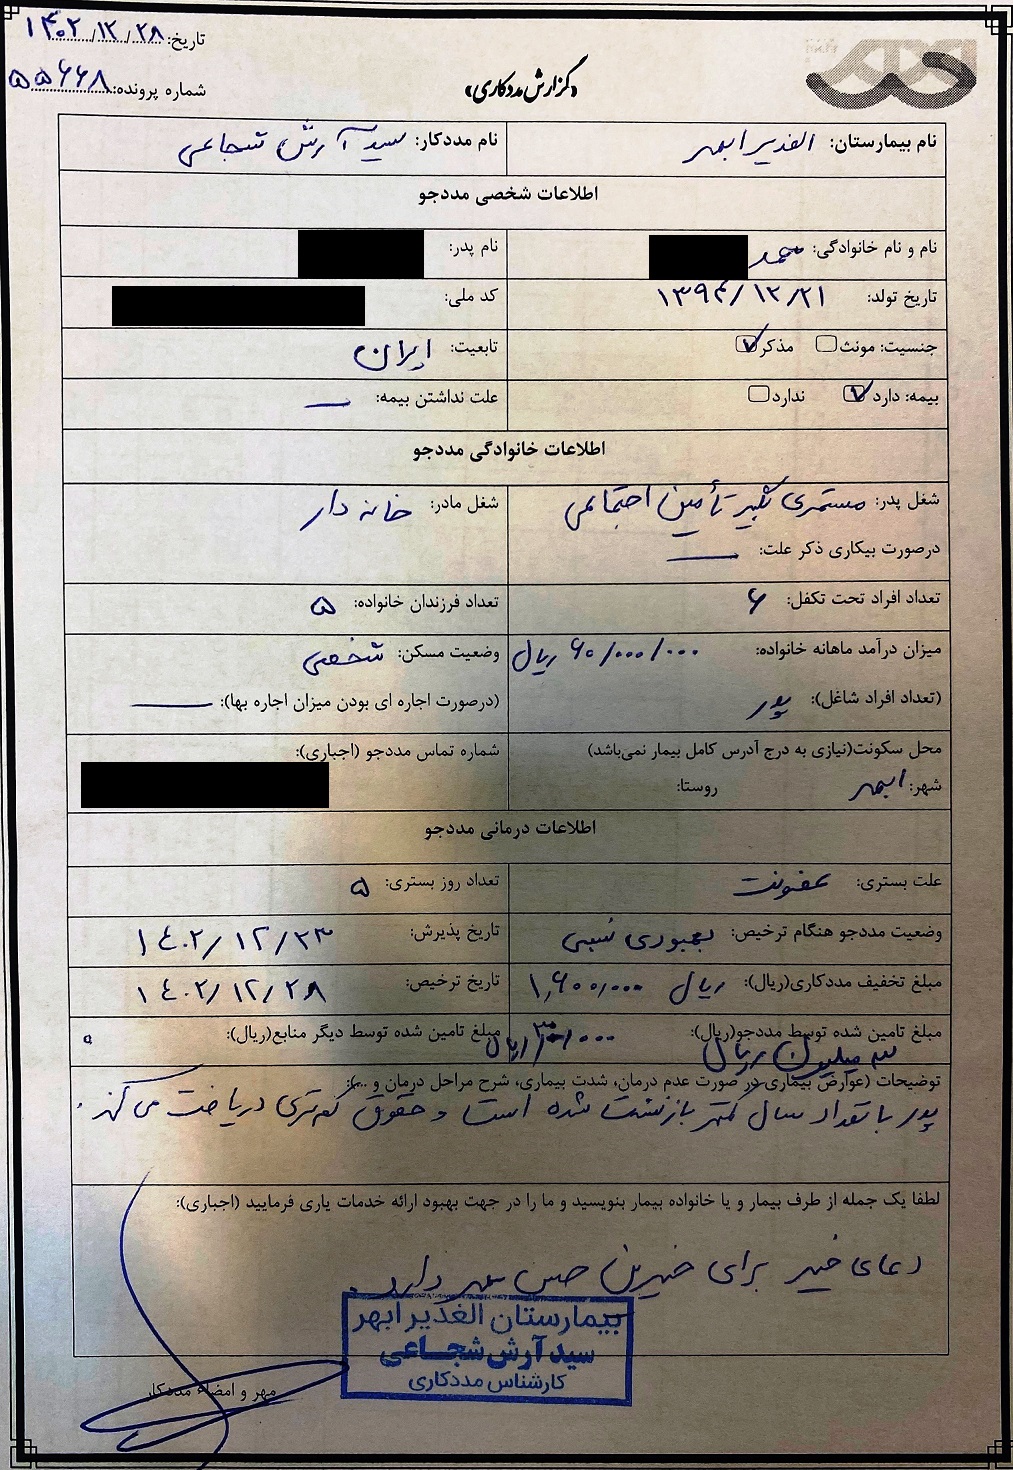 تاریخ: ۱۴۰۲/۱۲/۲۸
شماره پرونده: ۵۵۶۶۸
«گزارش مددکاری»
نام بیمارستان: الغدیر ابهر
نام مددکار: سید آرش شجاعی
اطلاعات شخصی مددجو
نام و نام خانوادگی: محمد
نام پدر:
تاریخ تولد: ۱۳۹۴/۱۲/۲۱
کد ملی:
جنسیت: مونث مذکر
تابعیت: ایران
بیمه: دارد ندارد
علت نداشتن بیمه: —
اطلاعات خانوادگی مددجو
شغل پدر: مستمری بگیر تأمین اجتماعی
درصورت بیکاری ذکر علت: —
شغل مادر: خانه دار
تعداد افراد تحت تکفل: ۶
تعداد فرزندان خانواده: ۵
میزان درآمد ماهانه خانواده: ۶۰/۰۰۰/۰۰۰ ریال
(تعداد افراد شاغل): پدر
وضعیت مسکن: شخصی
(درصورت اجاره ای بودن میزان اجاره بها): —
محل سکونت(نیازی به درج آدرس کامل بیمار نمی‌باشد)
شهر: ابهر روستا:
شماره تماس مددجو (اجباری):
اطلاعات درمانی مددجو
علت بستری: عفونت
تعداد روز بستری: ۵
وضعیت مددجو هنگام ترخیص: بهبودی نسبی
تاریخ پذیرش: ۱۴۰۲/۱۲/۲۳
مبلغ تخفیف مددکاری(ریال): ۱,۶۰۰,۰۰۰ ریال
تاریخ ترخیص: ۱۴۰۲/۱۲/۲۸
مبلغ تامین شده توسط مددجو(ریال):
۳ میلیون ریال
مبلغ تامین شده توسط دیگر منابع(ریال): ۰
توضیحات (عوارض بیماری در صورت عدم درمان، شدت بیماری، شرح مراحل درمان و ...):
پدر با تعداد سال کمتر بازنشست شده است و حقوق کمتری دریافت می کند.
لطفا یک جمله از طرف بیمار و یا خانواده بیمار بنویسید و ما را در جهت بهبود ارائه خدمات یاری فرمایید (اجباری):
دعای خیر برای خیرین حس مهر دارد.
بیمارستان الغدیر ابهر
سید آرش شجاعی
کارشناس مددکاری
مهر و امضاء مددکار